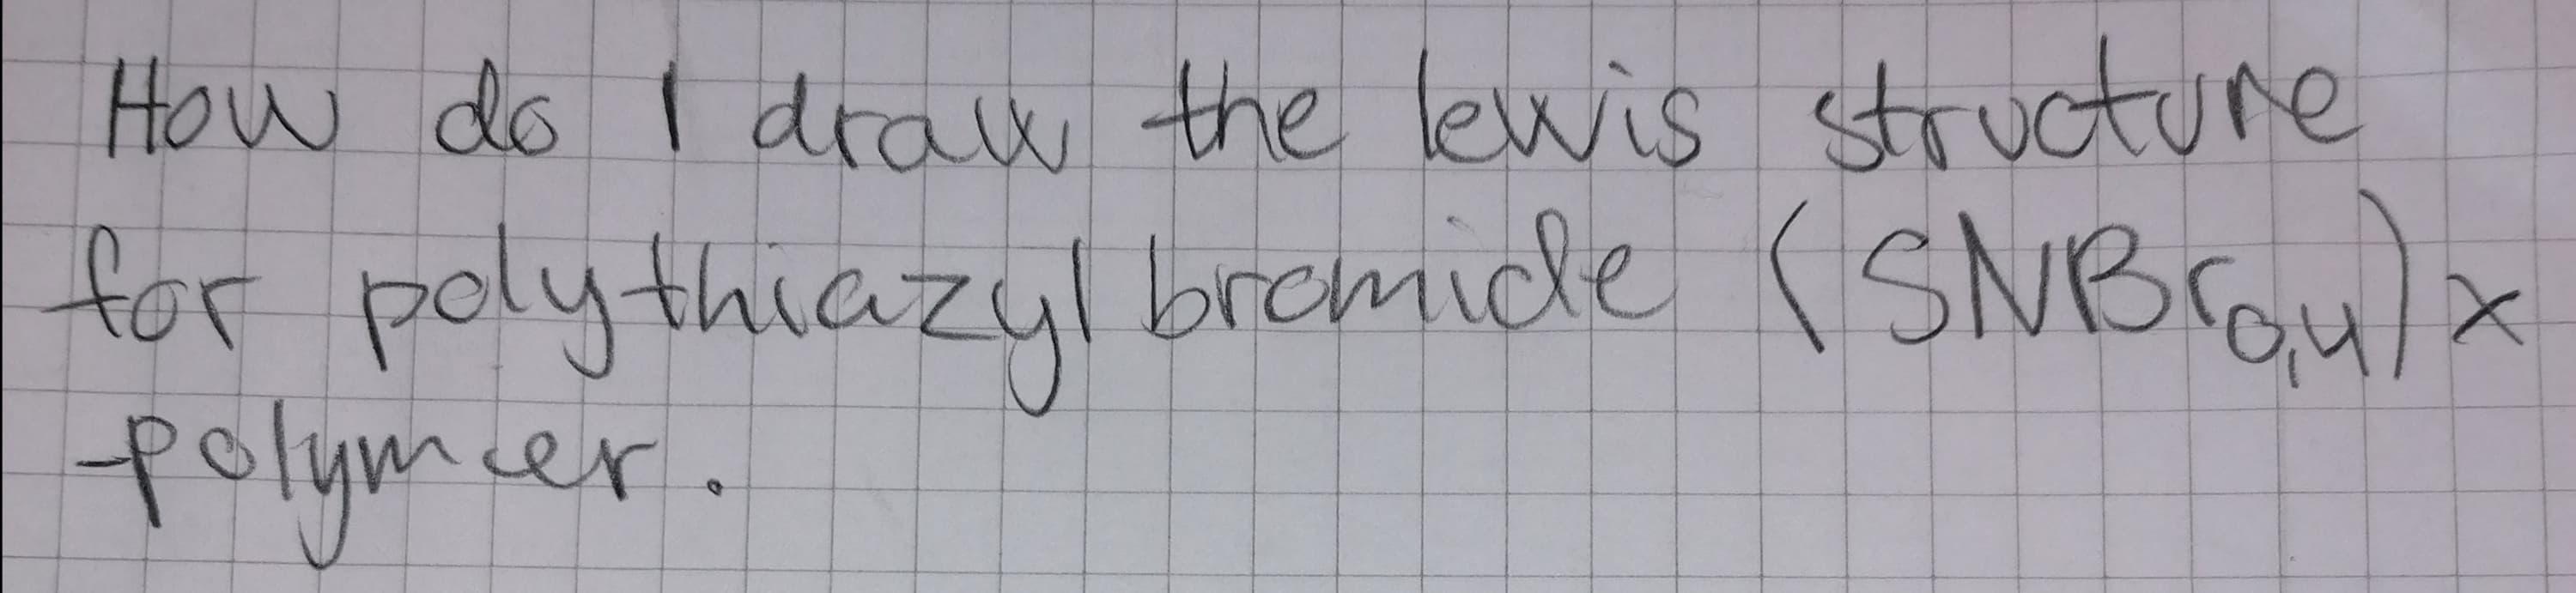 How do I draw the lewis structure
for polythiazylbromide (SNBr0,4)x
-polymer.